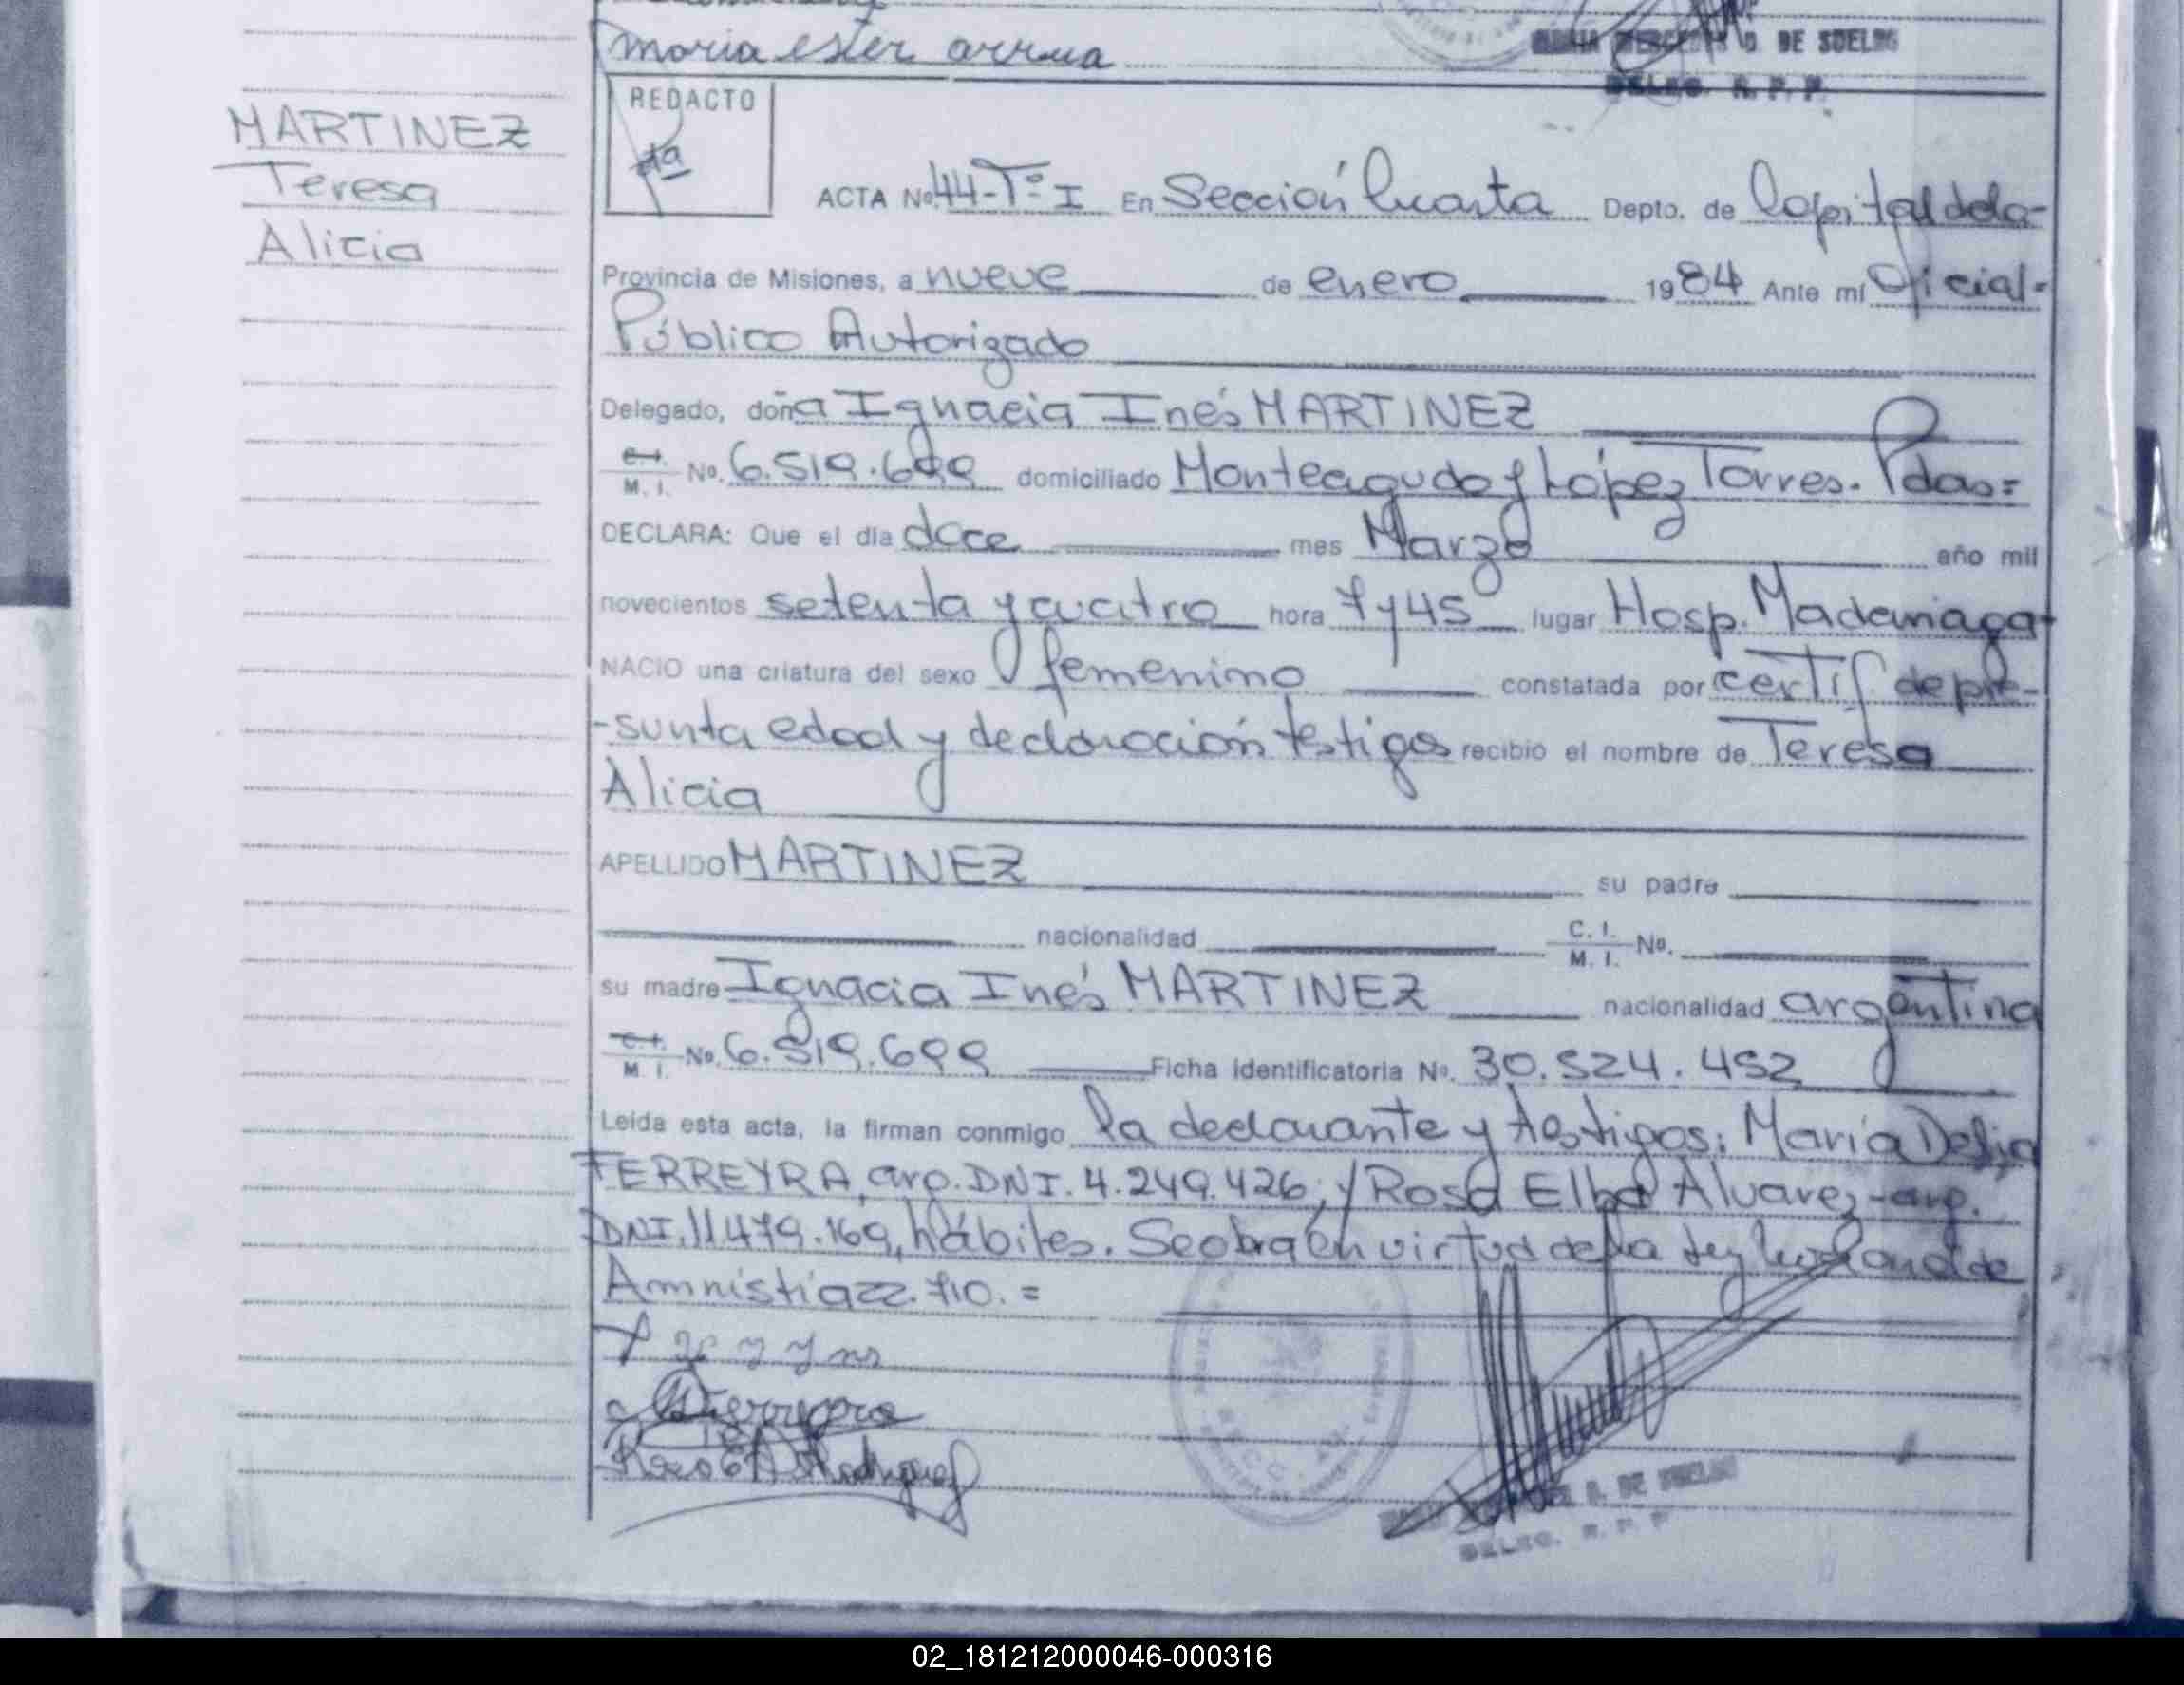 maria ester arrua
D. DE SDELNG
DELEG. R. P. P.
MARTINEZ
Teresa
Alicia
REDACTO
ACTA No. 44-Tº I En Sección Cuarta Depto. de Capital de la-
Provincia de Misiones, a nueve de enero 1984 Ante mí Oficial-
Público Autorizado
Delegado, doña Ignacia Inés MARTINEZ
C.I. M. I. No. 6.519.699 domiciliado Monteagudo y López Torres. Pdas=
DECLARA: Que el día doce mes Marzo año mil
novecientos setenta y cuatro hora 7 y 45 lugar Hosp. Madariaga-
NACIO una criatura del sexo femenino constatada por certif. de pre-
-sunta edad y declaración testigos recibió el nombre de Teresa
Alicia
APELLIDO MARTINEZ su padre
nacionalidad C. I. M. I. No.
su madre Ignacia Inés MARTINEZ nacionalidad argentina
C.I. M. I. No. 6.519.699 Ficha Identificatoria No. 30.524.452
Leída esta acta, la firman conmigo la declarante y testigos: María Delia
FERREYRA, arg. DNI. 4.249.426, y Rosa Elba Alvarez-arg.
DNI. 11.479.169, hábiles. Se obra en virtud de la Ley de
Amnistía 22.710. =
DELEG. R. P. P.
02_181212000046-000316